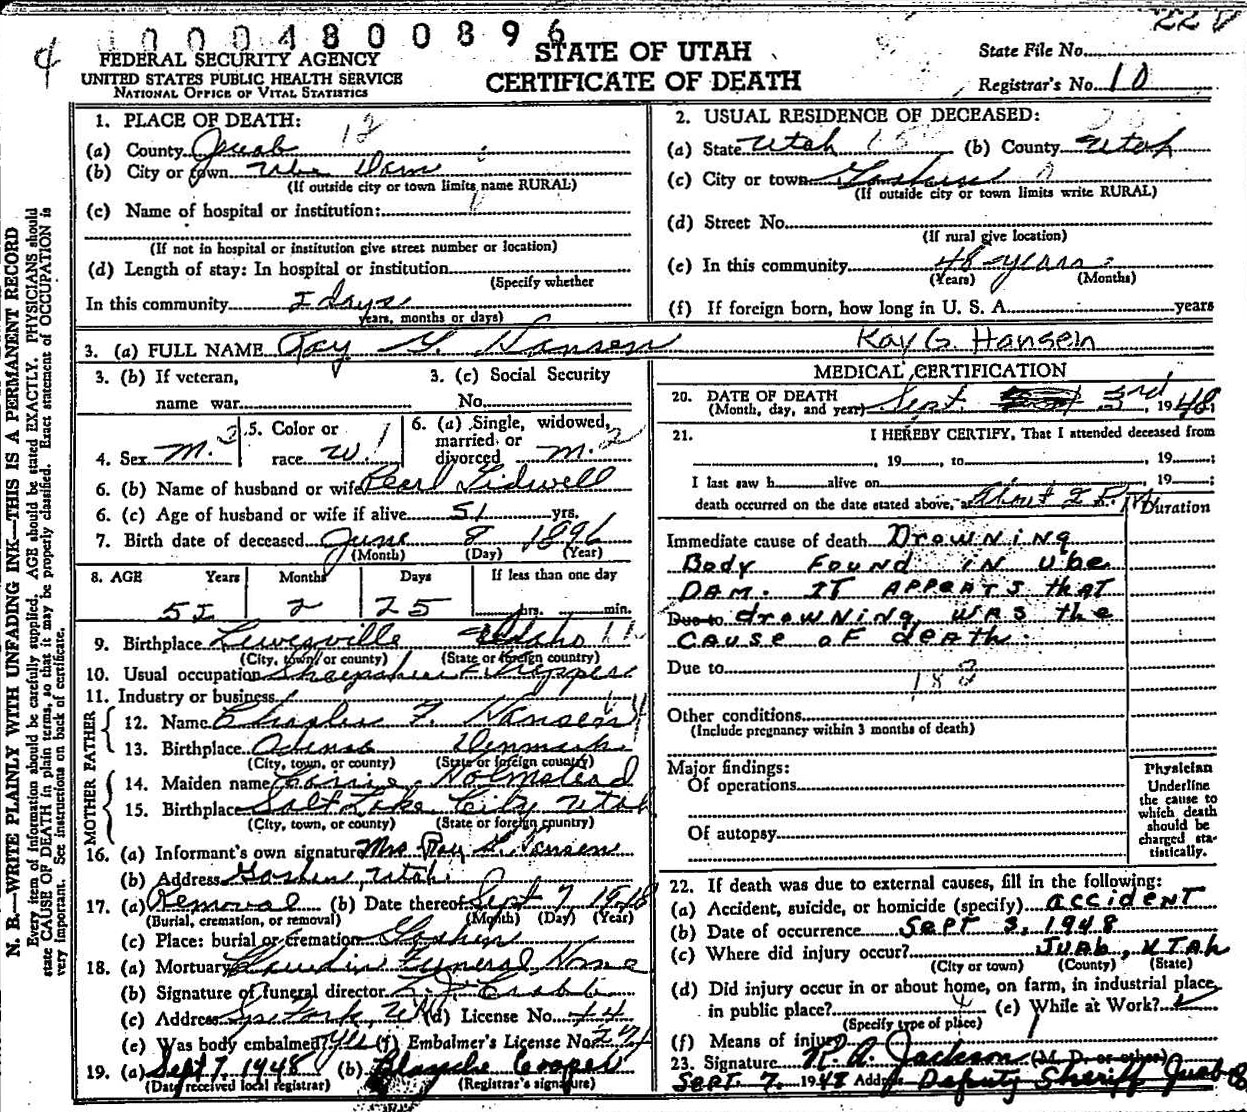 10004800896
22
4
FEDERAL SECURITY AGENCY
UNITED STATES PUBLIC HEALTH SERVICE
NATIONAL OFFICE OF VITAL STATISTICS
STATE OF UTAH
CERTIFICATE OF DEATH
State File No.
Registrar's No. 10
N. B.—WRITE PLAINLY WITH UNFADING INK—THIS IS A PERMANENT RECORD
Every item of information should be carefully supplied. AGE should be stated EXACTLY. PHYSICIANS should
state CAUSE OF DEATH in plain terms, so that it may be properly classified. Exact statement of OCCUPATION is
very important. See instructions on back of certificate.
1. PLACE OF DEATH: 12
(a) County Juab
(b) City or town Uba Dam
(If outside city or town limits name RURAL)
(c) Name of hospital or institution:
(If not in hospital or institution give street number or location)
(d) Length of stay: In hospital or institution
(Specify whether
In this community 2 days
years, months or days)
2. USUAL RESIDENCE OF DECEASED:
(a) State Utah (b) County Utah
(c) City or town Goshen
(If outside city or town limits write RURAL)
(d) Street No.
(If rural give location)
(e) In this community 48 years
(Years) (Months)
(f) If foreign born, how long in U. S. A. years
3. (a) FULL NAME Ray G. Hansen Ray G. Hansen
3. (b) If veteran, 3. (c) Social Security
name war No.
4. Sex M. 5. Color or race W 6. (a) Single, widowed, married or divorced M.
6. (b) Name of husband or wife Pearl Tidwell
6. (c) Age of husband or wife if alive 51 yrs.
7. Birth date of deceased June 8 1896
(Month) (Day) (Year)
8. AGE Years Months Days If less than one day
52 2 25 hrs. min.
9. Birthplace Lewisville Idaho
(City, town, or county) (State or foreign country)
10. Usual occupation Sheepshearer
11. Industry or business
FATHER
12. Name Charles F. Hansen
13. Birthplace Odense Denmark
(City, town, or county) (State or foreign country)
MOTHER
14. Maiden name Carrie Holmstead
15. Birthplace Salt Lake City Utah
(City, town, or county) (State or foreign country)
16. (a) Informant's own signature Mrs Ray G. Hansen
(b) Address Goshen, Utah
17. (a) Removal (b) Date thereof Sept 7 1948
(Burial, cremation, or removal) (Month) (Day) (Year)
(c) Place: burial or cremation Goshen
18. (a) Mortuary Claudin Funeral Home
(b) Signature of funeral director
(c) Address Sp. Fork, Ut (d) License No. 74
(e) Was body embalmed? Yes (f) Embalmer's License No.
19. (a) Sept 7, 1948 (b) Blanche Cooper
(Date received local registrar) (Registrar's signature)
MEDICAL CERTIFICATION
20. DATE OF DEATH
(Month, day, and year) Sept. 3rd, 1948
21. I HEREBY CERTIFY, That I attended deceased from
, 19 , to , 19 ;
I last saw h alive on , 19 ;
death occurred on the date stated above, at About 2 P. M.
Duration
Immediate cause of death DROWNING
BODY FOUND IN UBE
DAM. IT APPEARS THAT
Due to drowning was the
cause of death.
Due to
182
Other conditions
(Include pregnancy within 3 months of death)
Major findings:
Of operations
Of autopsy
Physician
Underline
the cause to
which death
should be
charged sta-
tistically.
22. If death was due to external causes, fill in the following:
(a) Accident, suicide, or homicide (specify) accident
(b) Date of occurrence SEPT 3, 1948
(c) Where did injury occur? JUAB, UTAH
(City or town) (County) (State)
(d) Did injury occur in or about home, on farm, in industrial place,
in public place? (e) While at Work?
(Specify type of place)
(f) Means of injury
23. Signature R. A. Jackson (M. D. or other)
SEPT. 7, 1948 Address Deputy Sheriff Juab